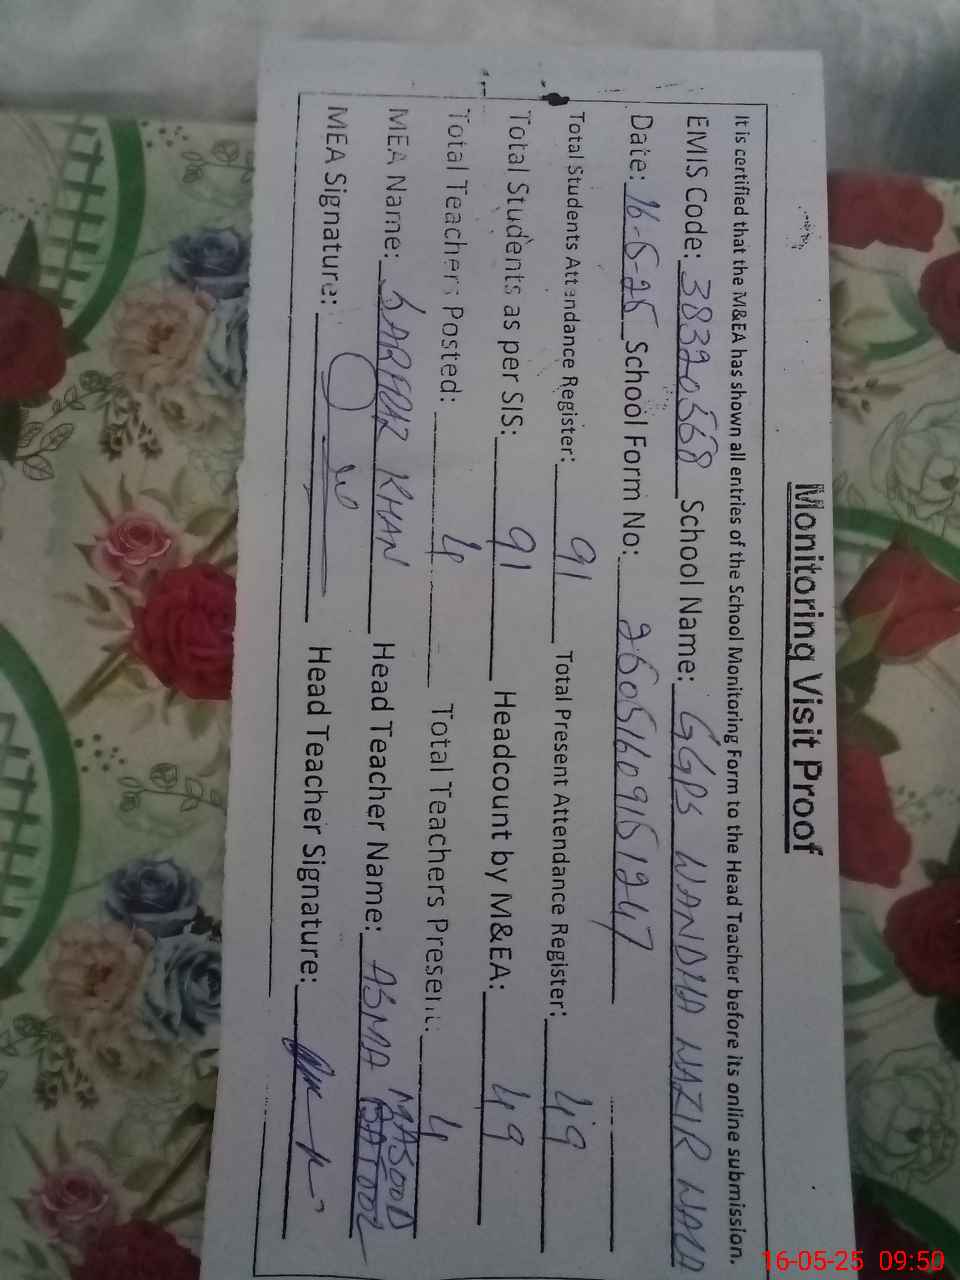 Monitoring Visit Proof
It is certified that the M&EA has shown all entries of the School Monitoring Form to the Head Teacher before its online submission.
EMIS Code: 38320568 School Name: GGPS WANDHA NAZIR WALA
Date: 16-5-25 School Form No: 26051609151247
Total Students Attendance Register: 91 Total Present Attendance Register: 49
Total Students as per SIS: 91 Headcount by M&EA: 49
Total Teachers Posted: 4 Total Teachers Present: 4
MEA Name: SARDAR KHAN Head Teacher Name: ASMA MASOOD
MEA Signature: Head Teacher Signature:
16-05-25 09:50